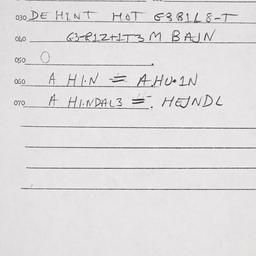 030 DE HINT HOT G3B1L8-T
040 G3-R1Z+1T3 M BAJN
050 O
060 A HI·N = A·HU·1N
070 A HI·NDAL3 = . HEJNDL